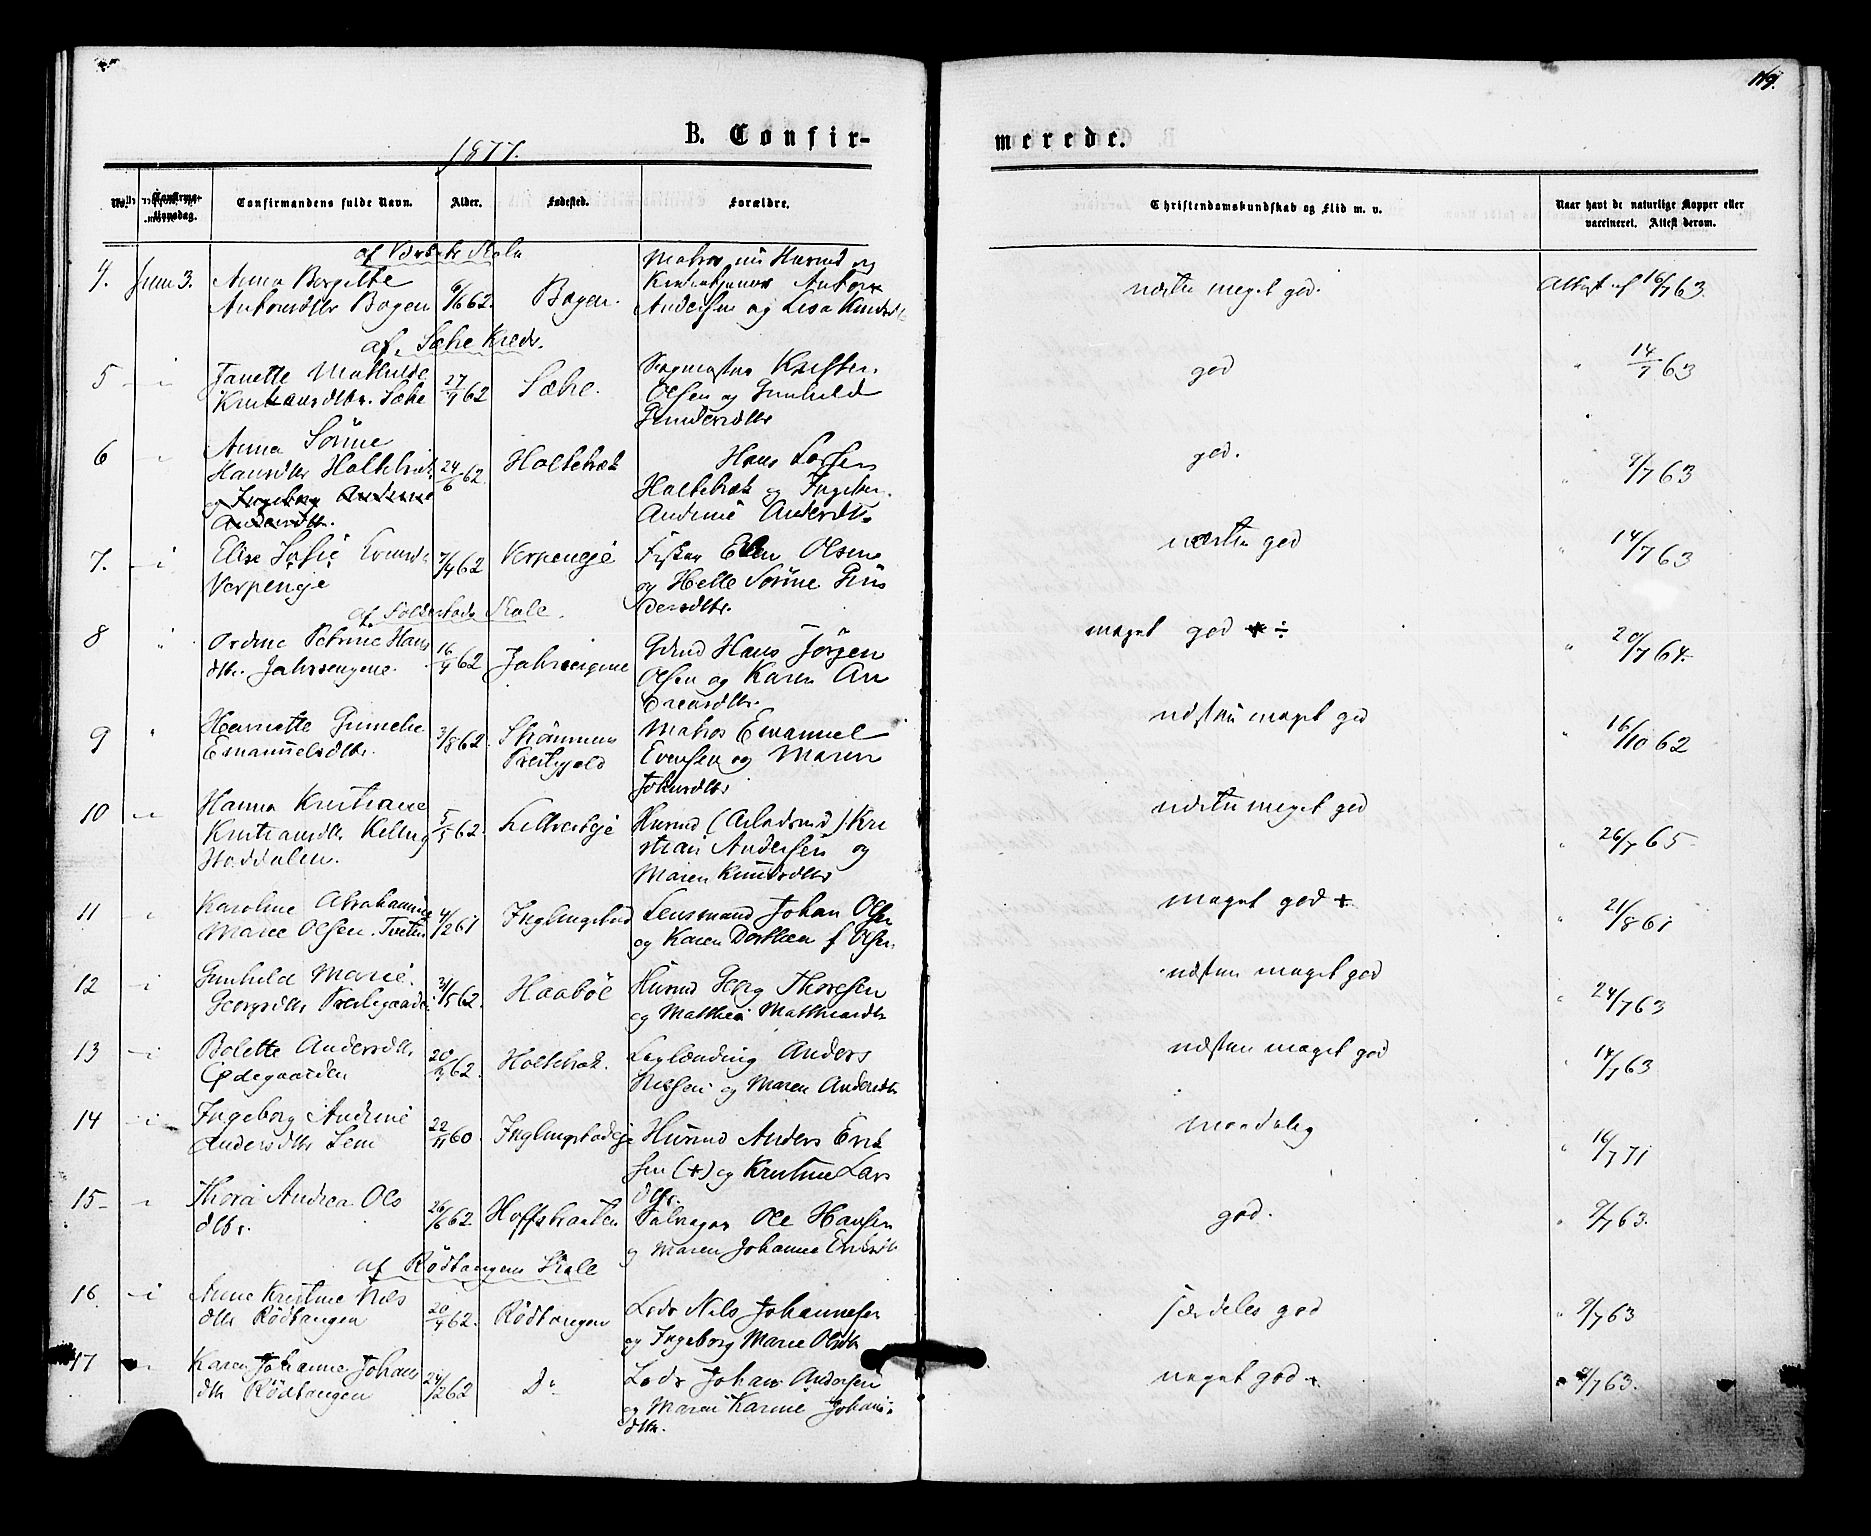 119.
1877.
B. Confirmerede.
No.
Confirmationsdag.
Confirmandens fulde Navn.
Alder.
Fødested.
Forældre.
Christendomskundskab og Flid m. v.
Naar havt de naturlige Kopper eller
vaccineret. Attest derom.
Skole
4. Juni 3. Anna Bergitte
Bogen 62 Bogen.
Matros Husmd og
Anton
Andersen og Lisa
næsten meget god.
Attest af 16/7 63.
af Sæhe Kreds.
5 Janette Mathilde
Kristiansdtr. Sæhe 27/4 62 Sæhe.
Olsen og Gunhild
Gundersdtr
god
14/7 63
6 Anna Sørine
Hansdtr Holtebræk 24/6 62 Holtebræk
og Ingeborg Andrine
Andersdtr.
Hans
Holtebræk og Ingebor.
Andrine Andersdtr
god.
9/7 63
7. Elise Sofie Evensd
Verpeneje 7/4 62 Verpeneje
Fisker Even Olsen
og Helle Sørine Gun
dersdtr.
næsten god
14/7 63
Skole.
8 Petrine Hans
dtr. Jahrsengene. 16/4 62 Jahrsengene
Grdmd Hans Jørgen
Olsen og Karen An
dreasdtr.
meget god ÷
20/7 64.
9 Henriette
Emanuelsdtr. 3/8 62 Strømmens
Prestegjeld
Matros Emanuel
Evensen og Maren
Johnsdtr
næsten meget god
16/10 62
10 Hanna Kristiane
Kristiansdtr
Haddalen. 5/5 62.
Husmd (Arbdsmd) Kri
stian Andersen og
Maren Knudsdtr
næsten meget god
26/7 65
11 Karoline Abrahamine
Maree Olsen. 4/2 61 Inglingstad
Lensmand Johan Olsen
og Karen Dorthea f Olsen
meget god +
21/8 61
12 Gunhild Marie
Georgsdtr Prestegaards 31/5 62. Haabøe
Husmd Georg Thoresen
og Matthea Matthiasdtr
næsten meget god
24/7 63
13 Bolette Andersdtr
Ødegaarden 62. Holtebræk.
Anders
Nissen og Maren Andersdtr
næsten meget god
14/7 63
14 Ingeborg Andrine
Andersdtr Lem 22/11 60. Inglingstadeje
Husmd Anders Erik
sen (+) og Kristine Lars
dtr.
maadelig
16/7 71
15 Thora Andrea Ols
dtr. 26/6 62. Hoffstranten
Ole Hansen
og Maren Johanne Eriksdtr
god.
9/7 63.
af Rødtangen Skole
16 Anne Kristine Nils
dtr Rødtangen 20/4 62. Rødtangen
Lods Nils Johannesen
og Ingeborg Marie Olsdtr
særdeles god
9/7 63
17 Karen Johanne Johans
dtr Rødtangen 24/2 62 Do
Lods Johan Andersen
og Maren Karine Johans
dtr.
meget god +
9/7 63.